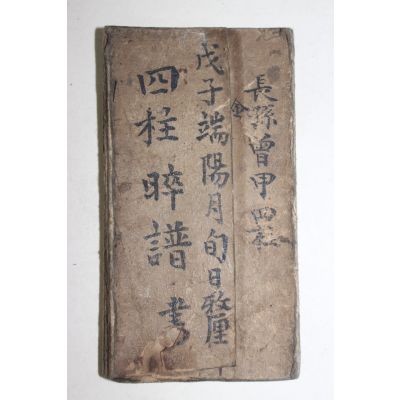 長孫曾甲四柱
金
戊子端陽月旬日敎厘
四柱晬譜 考